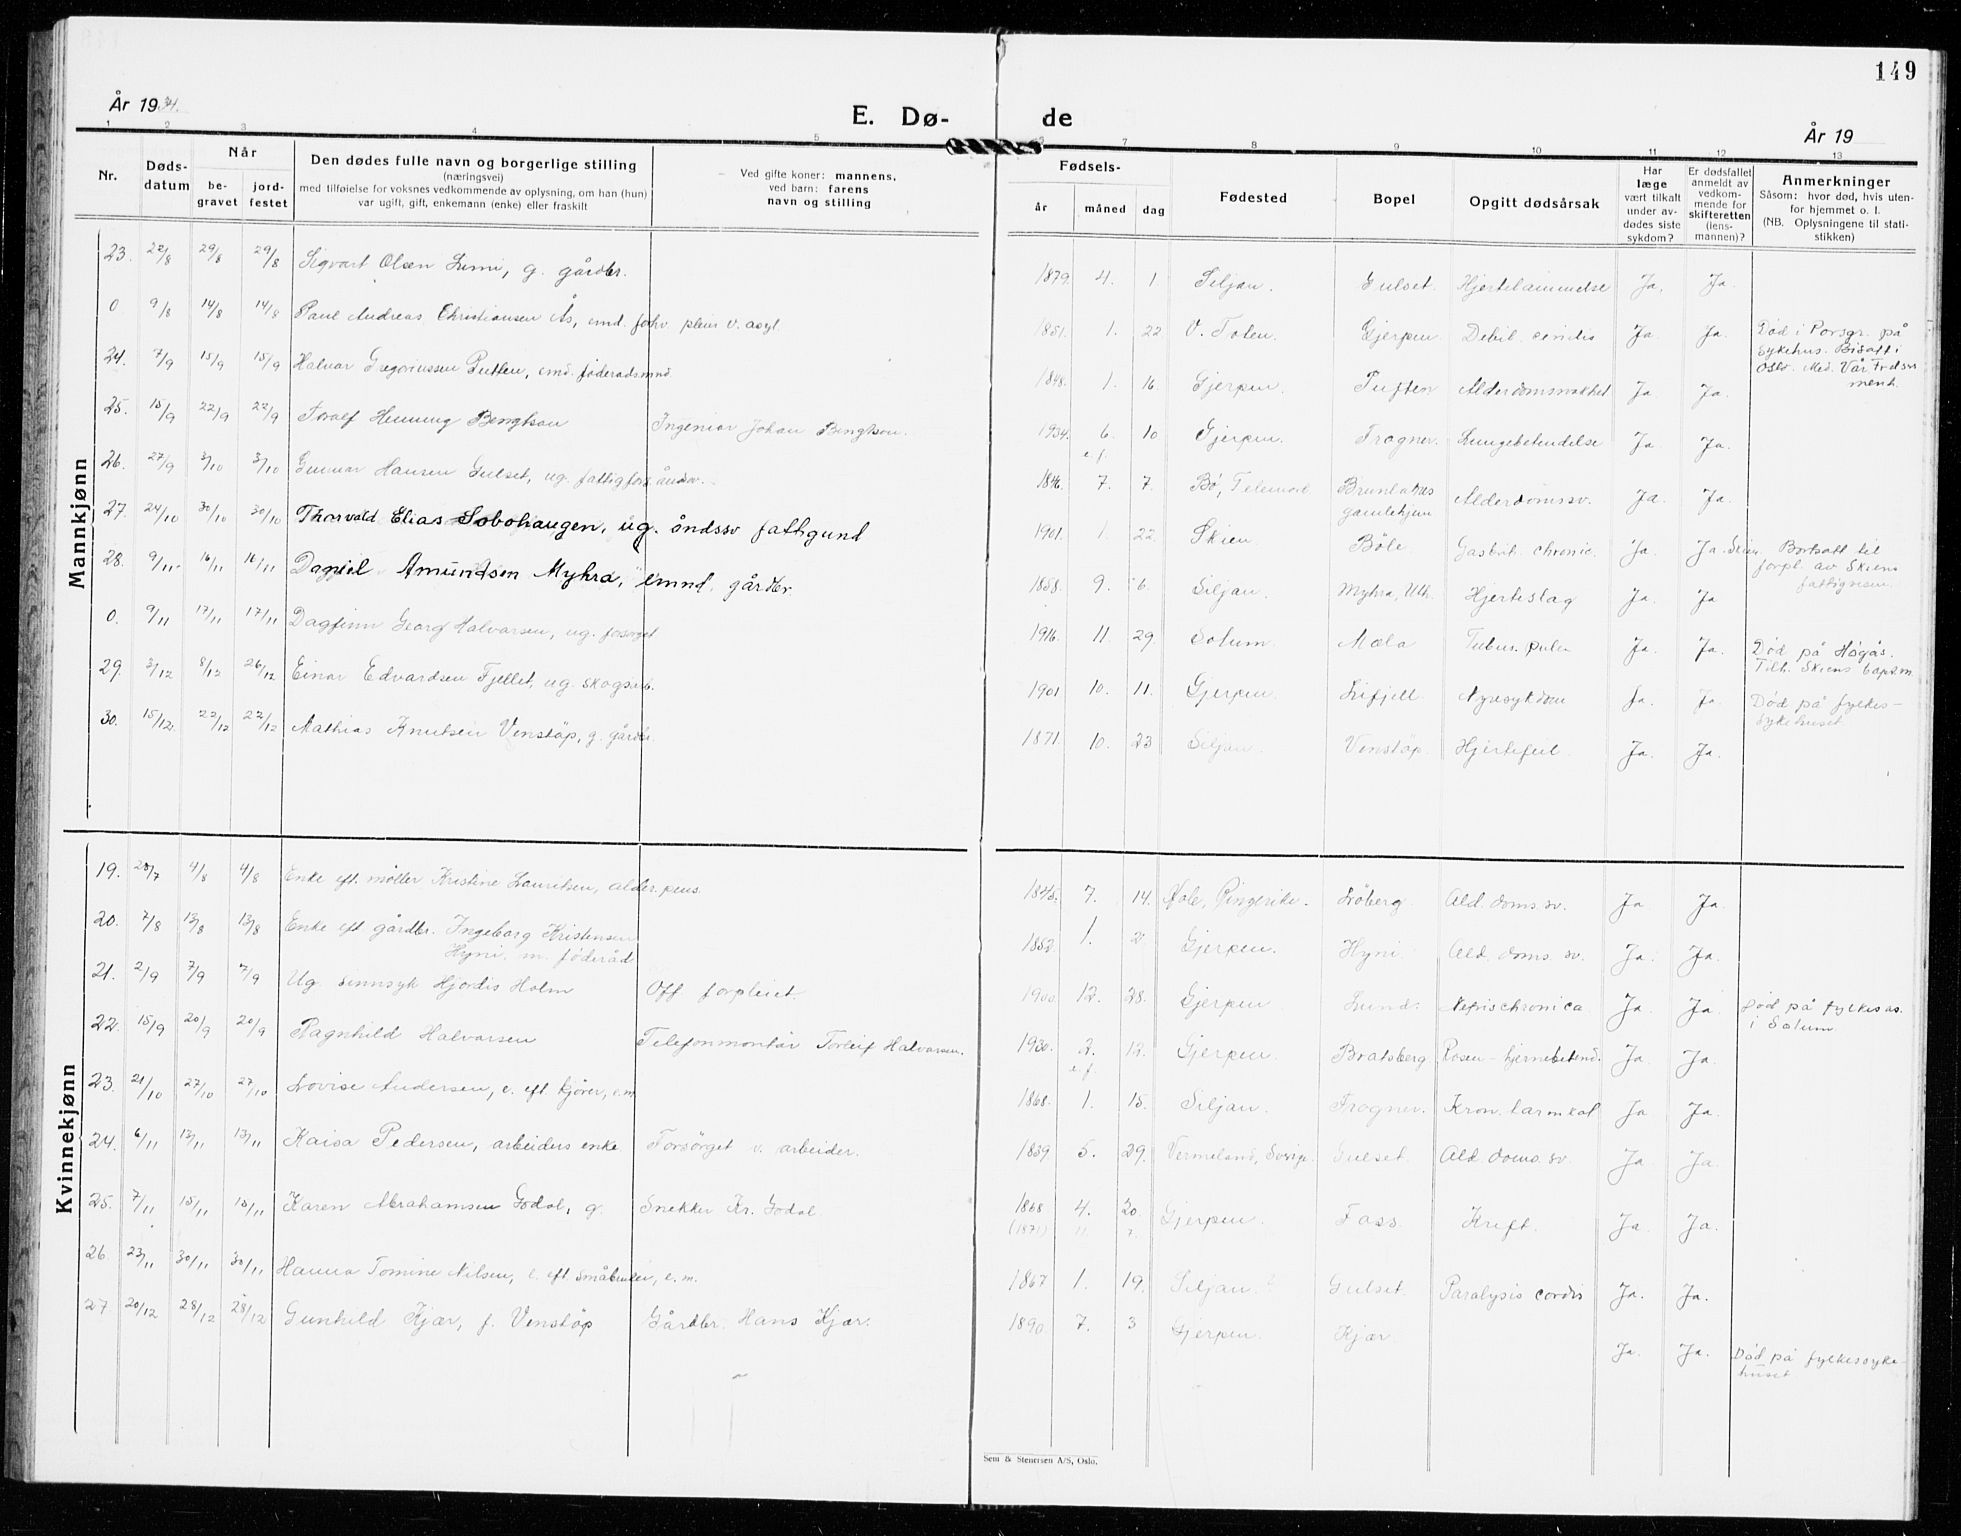 149
År 1934.
E. Dø- de
År 19
1 2 3 4 5 6 7 8 9 10 11 12 13
Nr.
Døds-
datum
Når
be-
gravet
jord-
festet
Den dødes fulle navn og borgerlige stilling
(næringsvei)
med tilføielse for voksnes vedkommende av oplysning, om han (hun)
var ugift, gift, enkemann (enke) eller fraskilt
Ved gifte koner: mannens,
ved barn: farens
navn og stilling
Fødsels-
år måned dag
Fødested
Bopel
Opgitt dødsårsak
Har
læge
vært tilkalt
under av-
dødes siste
sykdom?
Er dødsfallet
anmeldt av
vedkom-
mende for
skifteretten
(lens-
mannen)?
Anmerkninger
Såsom: hvor død, hvis uten-
for hjemmet o. l.
(NB. Oplysningene til stati-
stikken)
Mannkjønn
23. 22/8 29/8 29/8 Sigvart Olsen Lumi, g. gårdbr. 1879. 4. 1. Siljan. Gulset. Hjertelammelse Ja. Ja.
0 9/8 14/8 14/8 Paul Andreas Christiansen Ås, emd. forhv. pleier v. asyl. 1851. 1. 22. V. Toten. Gjerpen Debil. cenilis Ja. Ja. Død i Porsgr. på
sykehus. Bisatt i
Oslo. Med. Vår Frelsers
menh.
24. 7/9 15/9 15/9 Halvor Gregoriussen Puften, emd. føderadsmnd 1848. 1. 16. Gjerpen. Puften Alderdomssvakhet Ja Ja.
25. 15/9 22/9 22/9 Toralf Henning Bengtson Ingeniør Johan Bengtson. 1934. 6. 10 Gjerpen. Frogner. Lungebetendelse Ja Ja.
e.f.
26. 27/9 3/10 3/10 Gunnar Hansen Gulset, ug. fattigfors. åndsv. 1846. 7. 7. Bø, Telemark Brunlanes
gamlehjem Alderdomssv. Ja. Ja.
27. 24/10 30/10 30/10 Thorvald Elias Sobohaugen, ug. åndssv fattigund 1901. 1. 22. Skien Bøle Gastrit. chronic. Ja. Ja. Skien. Bortsatt til
forpl. av Skiens
fattigvesen.
28. 9/11 16/11 16/11 Daniel Amundsen Myhra, emnd. gårdbr. 1858. 9. 6. Siljan. Myhra, Utk. Hjerteslag Ja. Ja
0. 9/11 17/11 17/11 Dagfinn Georg Halvorsen, ug. forsørget 1916. 11. 29. Solum. Mæla Tubus. pulm Ja. Ja. Død på Høgås.
Tilh. Skiens baptm.
29. 3/12 8/12 26/12 Einar Edvardsen Fjellet, ug. skogsarb. 1901 10. 11. Gjerpen. Lifjell Nyresykdom Ja. Ja. Død på fylkes-
sykehuset
30. 15/12. 22/12 22/12 Mathias Knutsen Venstøp, g. gårdbr. 1871. 10. 23 Siljan. Venstøp. Hjertefeil. Ja. Ja.
Kvinnekjønn
19. 28/7 4/8 4/8 Enke eft. møller Kristine Lauritsen, alders.pens. 1845. 7. 14. Hole, Ringerike. Løberg. Ald.doms.sv. Ja Ja.
20. 7/8 13/8 13/8 Enke eft gårdbr. Ingeborg Kristensen
Hyni. m. føderåd 1852. 1. 2 Gjerpen. Hyni. Ald.doms.sv. Ja. Ja.
21. 2/9 7/9 7/9 Ug. sinnsyk Hjørdis Holm Off forpleiet. 1900. 12. 28. Gjerpen Lund. Nefrischronica Ja. Ja. Død på fylkesas.
i Solum
22. 15/9 20/9 20/9 Ragnhild Halvorsen Telefonmontør Torleif Halvorsen. 1930. 2. 12. Gjerpen. Bratsberg Rosen-hjernebetend. Ja Ja.
e.f.
23. 21/10 27/10 27/10 Lovise Andersen, e. eft. kjører, e.m. 1868. 1. 15. Siljan. Frogner. Kron. tarmkat Ja Ja.
24. 6/11 13/11 13/11 Kaisa Pedersen, arbeiders enke Forsørget v. arbeider. 1839. 5. 29. Vermeland, Sverige. Gulset. Ald.doms.sv. Ja. Ja.
25. 7/11 15/11 15/11 Karen Abrahamsen Godal, g. Snekker Kr. Godal. 1868 4. 20 Gjerpen. Foss. Kreft. Ja. Ja.
(1871) 11. 7.
26. 23/11 30/11 30/11 Hanna Tomine Nilsen, e. eft småbruker, e.m. 1867 1. 19. Siljan.? Gulset. Paralysis cordis Ja. Ja.
27 20/12 28/12 28/12 Gunhild Kjær, f. Venstøp Gårdbr. Hans Kjær. 1890. 7. 3 Gjerpen. Kjær. Ja. Ja. Død på fylkessyke-
huset
Sem & Stenersen A/S, Oslo.